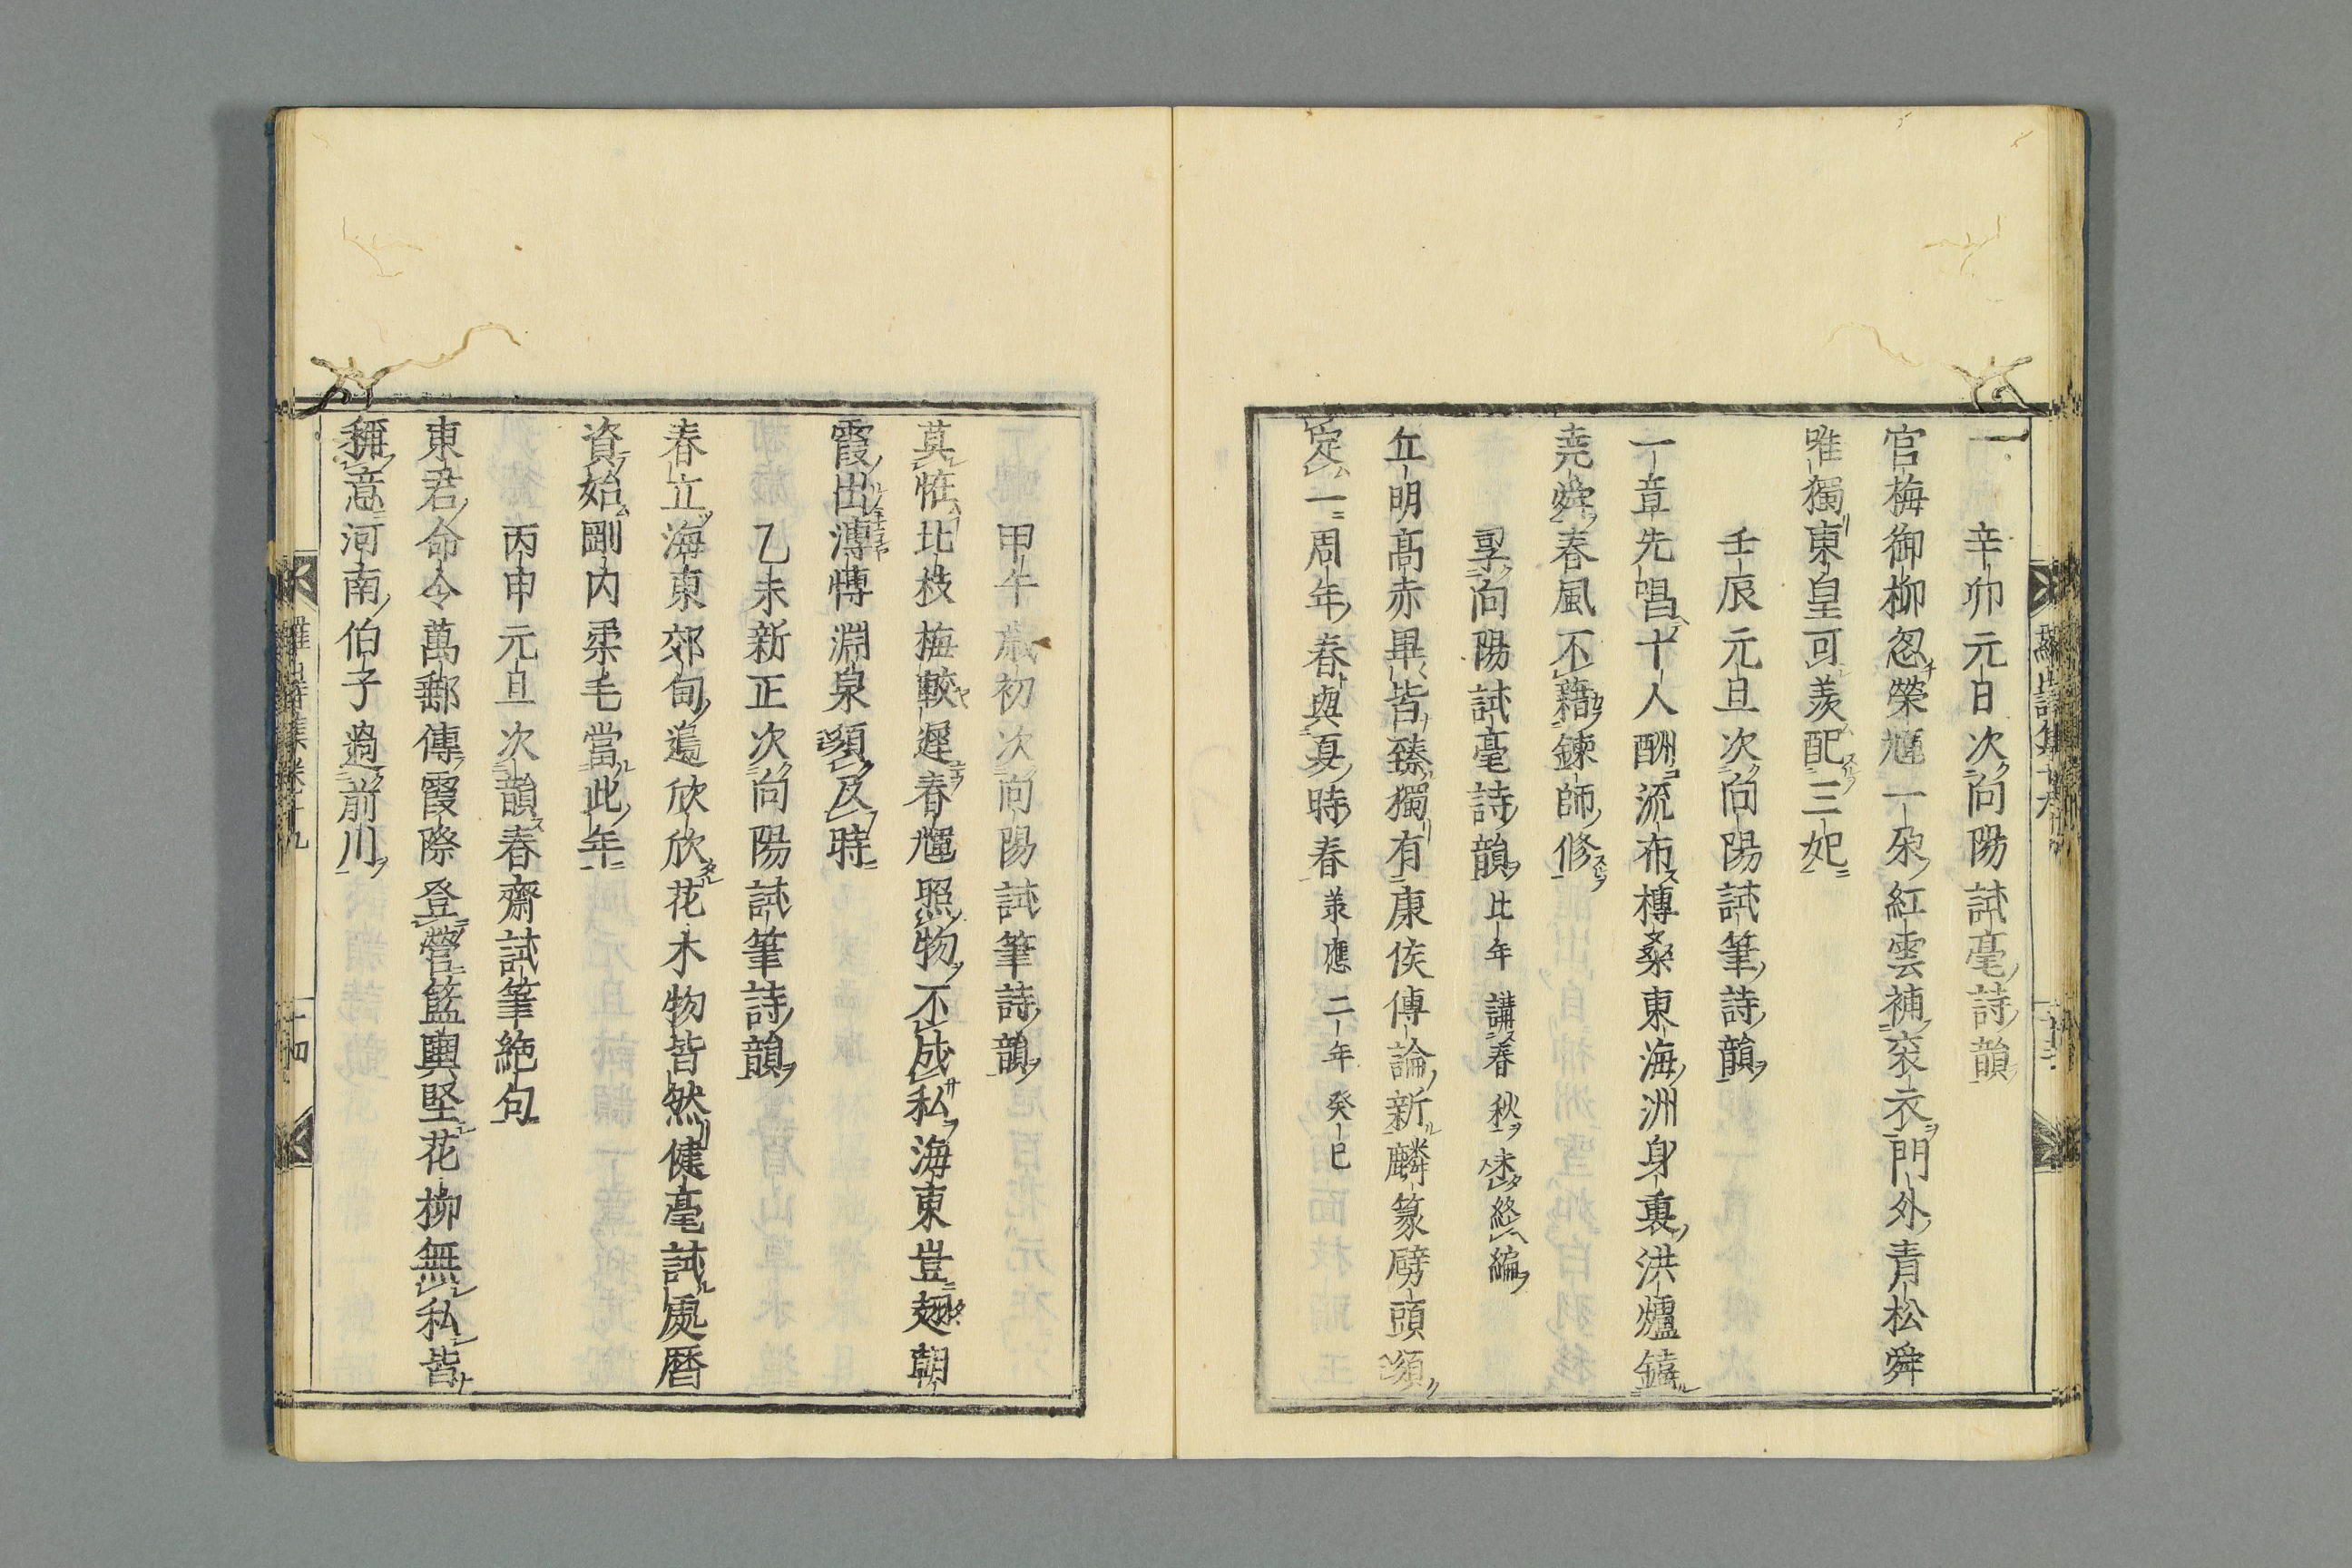 辛卯元日次向陽試毫詩韻
官梅御柳忽榮魁一朶紅雲補袞衣門外青松舜
唯獨東皇可羨配三妃
壬辰元旦次向陽試筆詩韻
一章先唱十人酬流布榑桑東海洲身裏洪爐鑄
堯舜春風不藉鍊師修
和向陽試毫詩韻 比年講春秋未終編
丘明高赤畢皆臻獨有康侯傳論新麟篆劈頭須
定一周年春與夏時春 承應二年癸巳
甲午歳初次向陽試筆詩韻
莫恠北枝梅較遲春魁照物不成私海東豈翅朝
霞出溥愽淵泉須及時
乙未新正次向陽試筆詩韻
春立海東郊甸邊欣欣花木物皆然健毫試處暦
資始剛内柔毛當此年
丙申元旦次韻春齋試筆絶句
東君命令萬郵傳霞際登營籃輿堅花柳無私皆
稱意河南伯子過前川
羅山詩集卷十九
十四